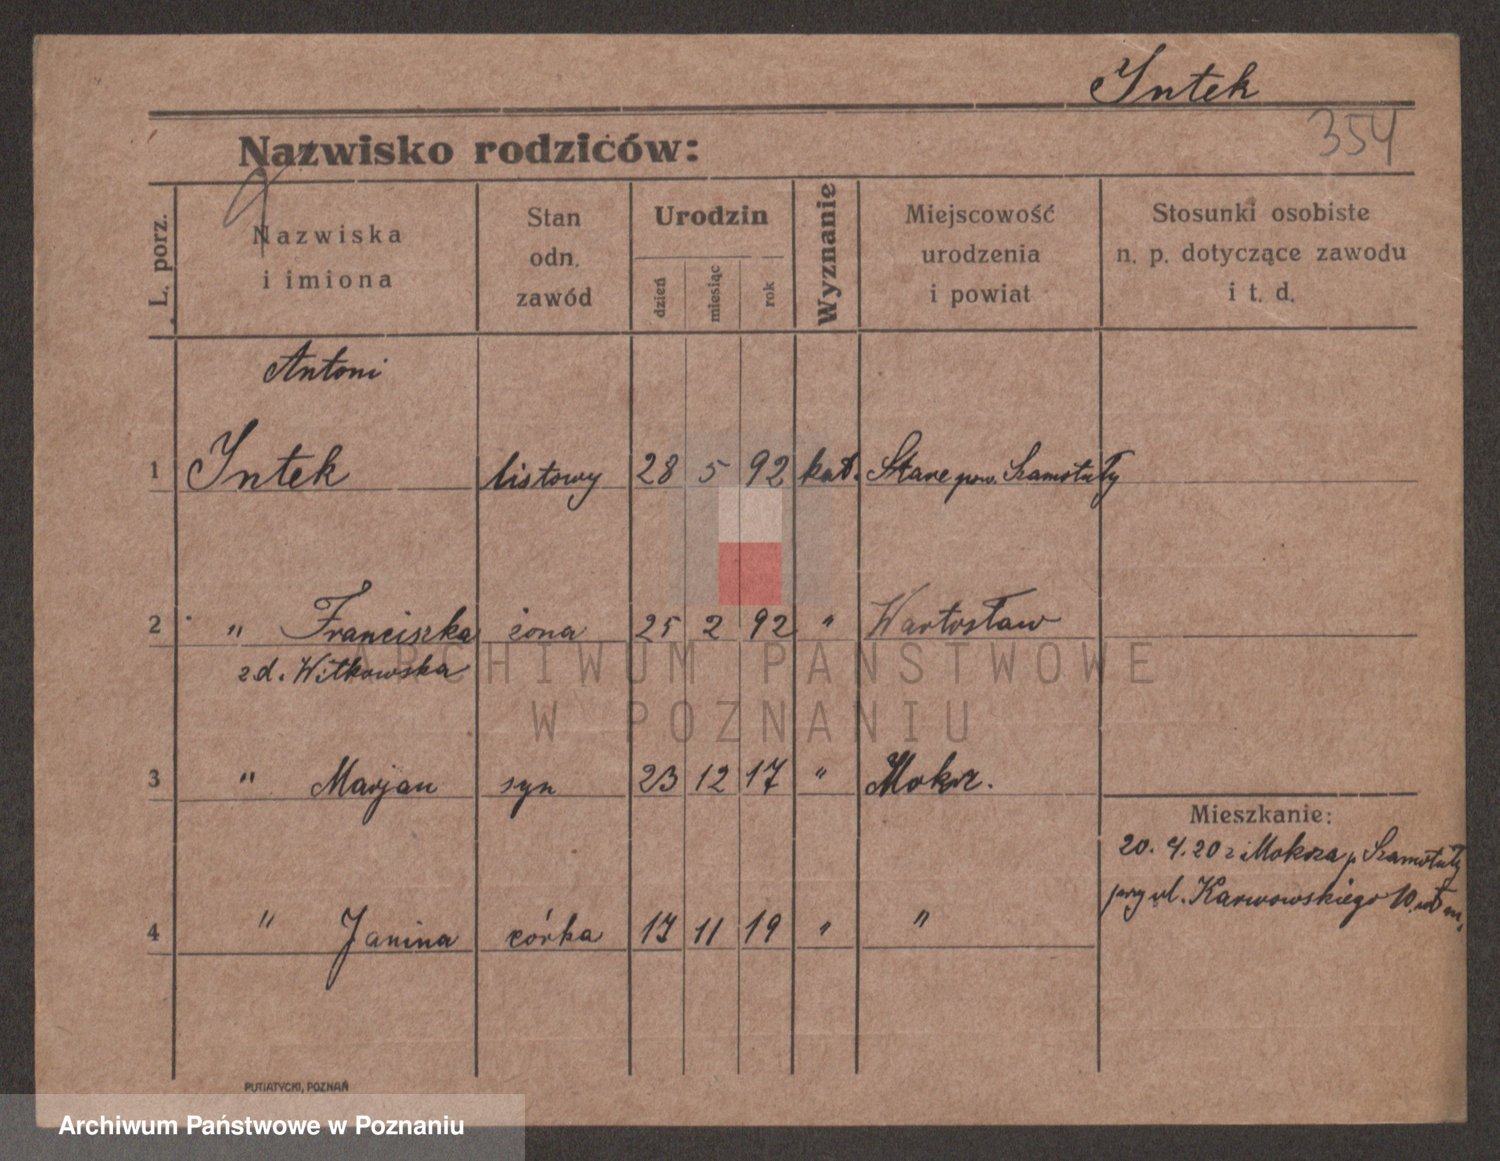 Intek
354
Nazwisko rodziców:
L. porz.
Nazwiska
i imiona
Stan
odn.
zawód
Urodzin
dzień
miesiąc
rok
Wyznanie
Miejscowość
urodzenia
i powiat
Stosunki osobiste
n. p. dotyczące zawodu
i t. d.
Antoni
1 Intek listowy 28 5 92 kat. Stare pow. Szamotuły
2 " Franciszka żona 25 2 92 " Wartosław
z d. Witkowska
ARCHIWUM PAŃSTWOWE
W POZNANIU
3 " Marjan syn 23 12 17 " Mokrz.
Mieszkanie:
20. 4. 20 z Mokrza p. Szamotuły
przy ul. Karwowskiego 10.
4 " Janina córka 17 11 19 " "
PUTIATYCKI, POZNAŃ
Archiwum Państwowe w Poznaniu